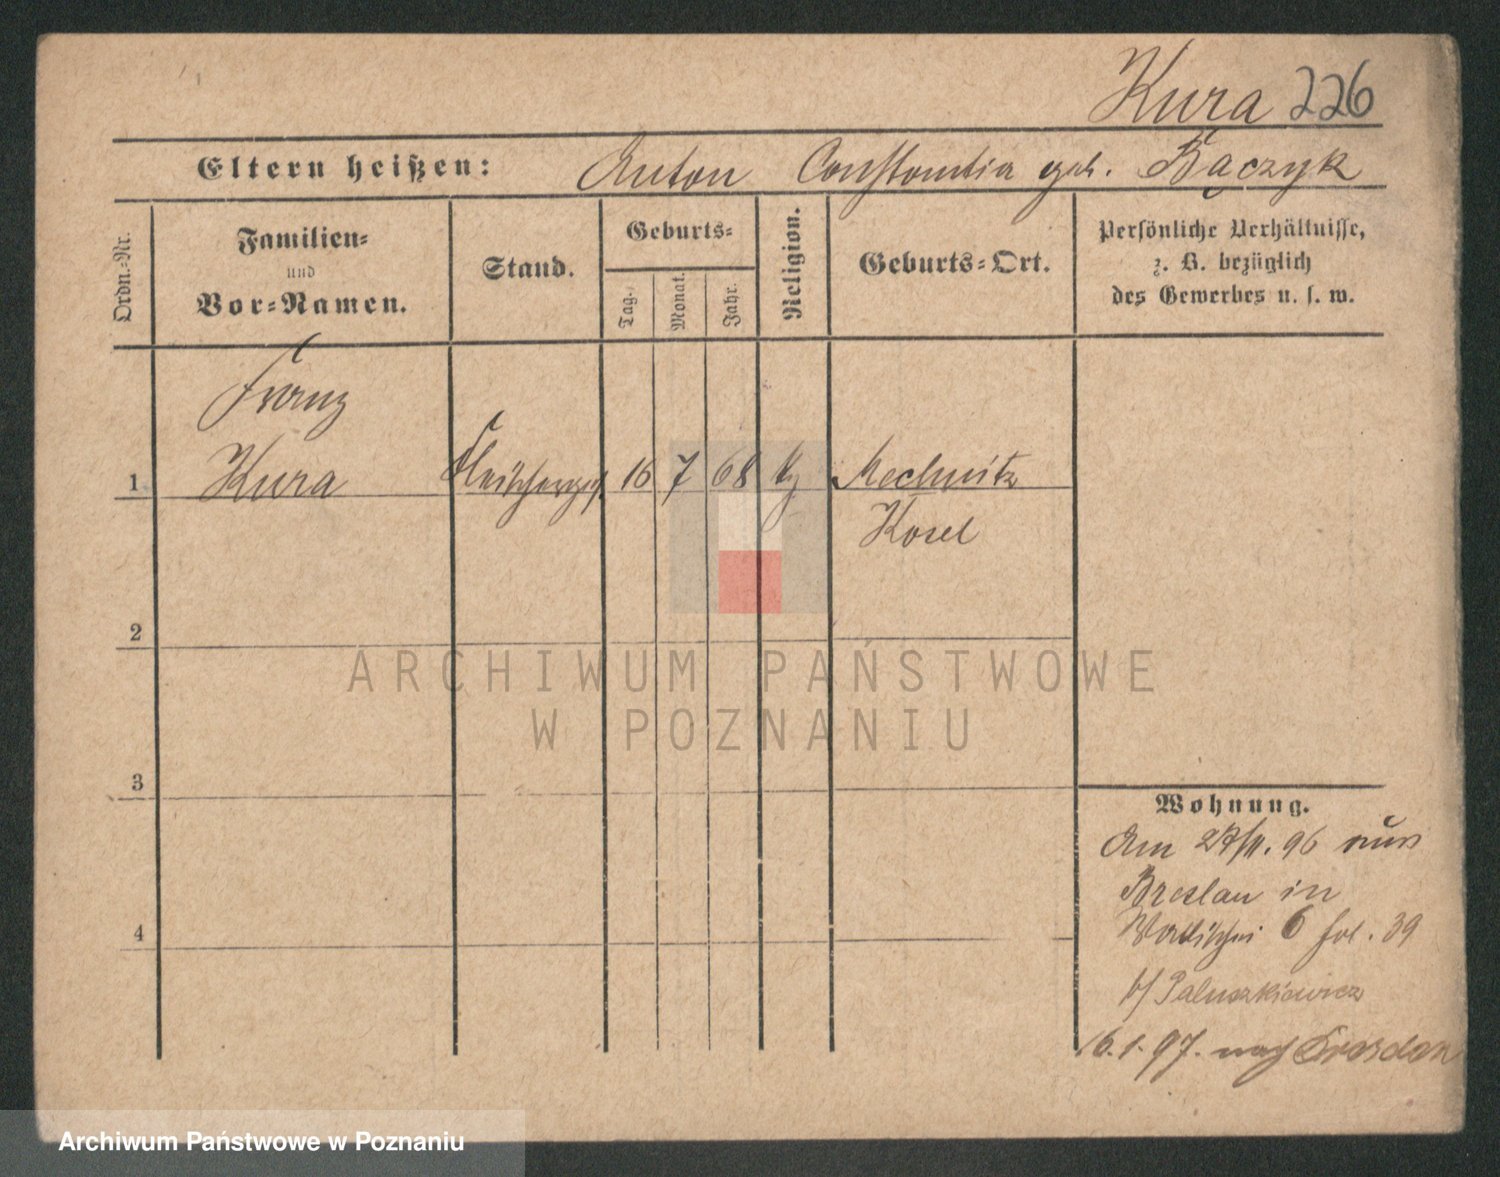 Kura 226
Eltern heißen: Anton Constantia geb. Bączyk
Ordn.-Nr.
Familien-
und
Vor-Namen.
Stand.
Geburts-
Tag.
Monat.
Jahr.
Religion.
Geburts-Ort.
Persönliche Verhältnisse,
z. B. bezüglich
des Gewerbes u. s. w.
Franz
1 Kura Fleischerges 16 7 68 kg Rechnitz
Kosel
2
3
4
Wohnung.
Am 27/11. 96 aus
Breslau in
6 fol. 39
b/ Paluszkiewicz
16.1.97. nach Dresden
ARCHIWUM PAŃSTWOWE
W POZNANIU
Archiwum Państwowe w Poznaniu